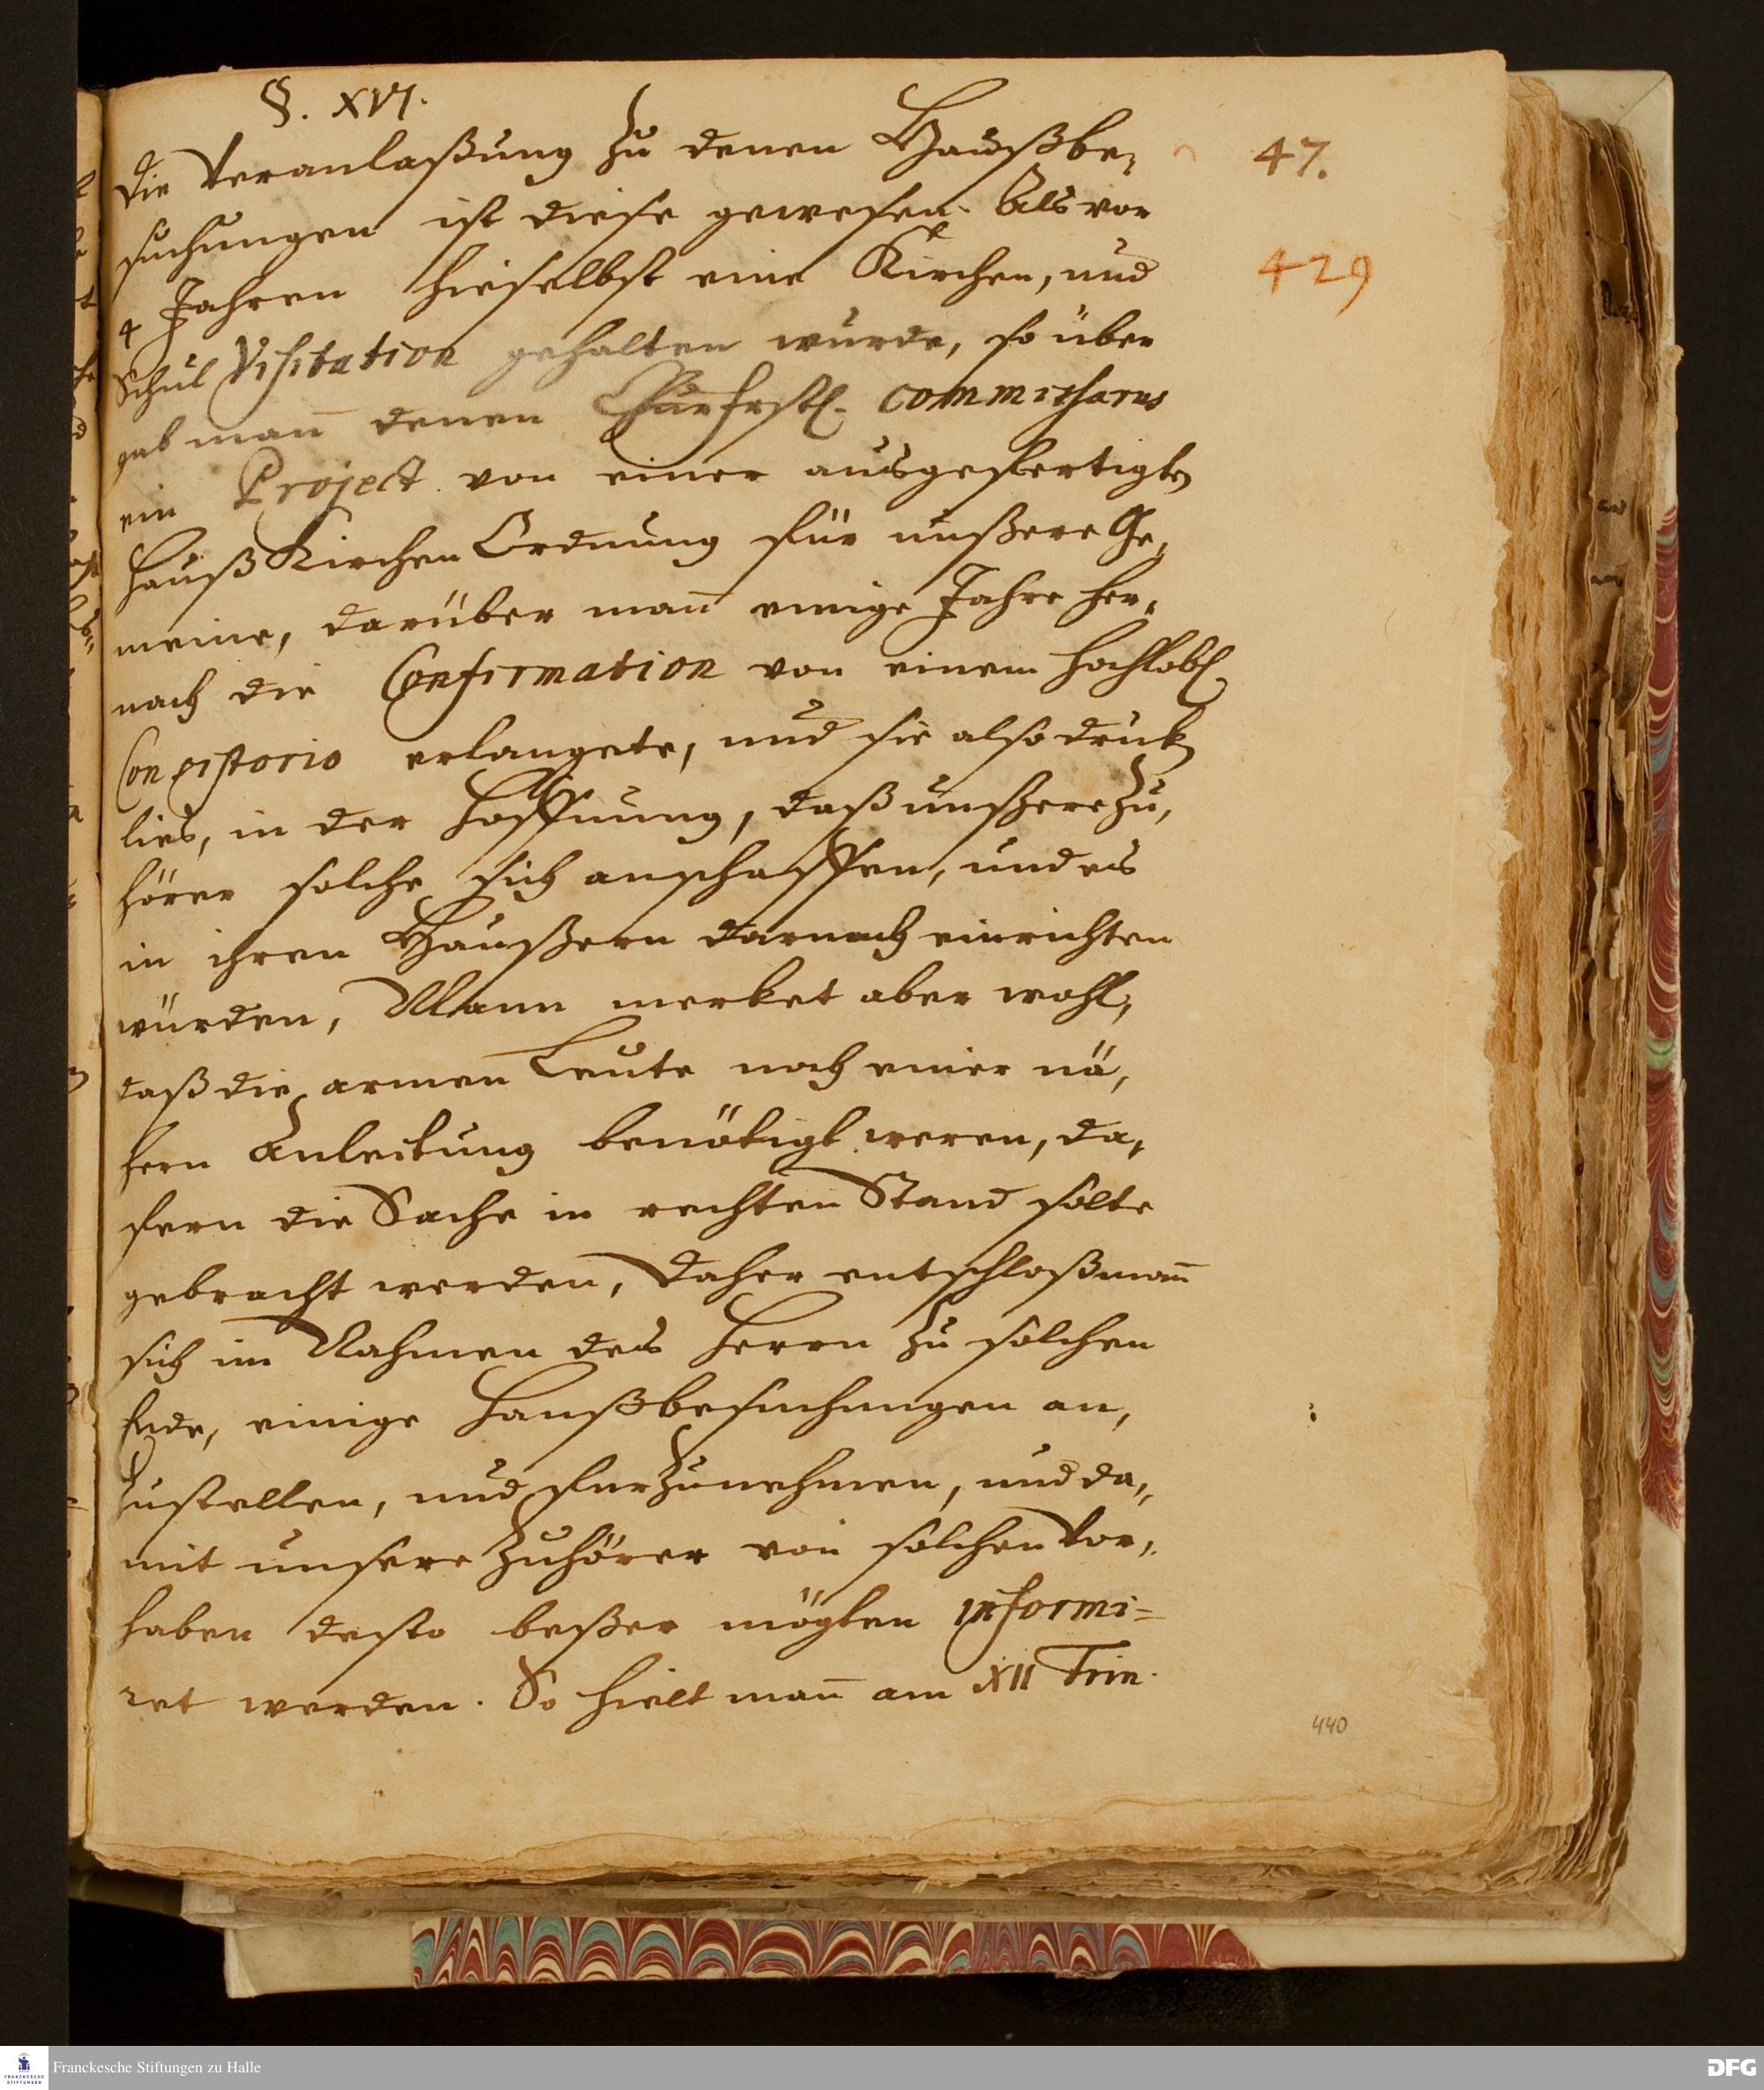 §. XVI.
Die Veranlaßung zu denen Haußbe„
suchungen ist diese gewesen. Als vor
4 Jahren hieselbst eine Kirchen, und
Schul Visitation gehalten wurde, so über
gab man̄ denen Churfrstl. Commissarus
ein Project von einer ausgefertigten
Hauß Kirchen Ordnung für unßere Ge„
meine, darüber man̄ einige Jahre her„
nach die Confirmation von einem Hochlöbl.
Consistorio erlangete, und sie also drucken
lies, in der Hoffnung, daß unßere Zu„
hörer solche sich anschaffen, und es
in ihren Haußern darnach einrichten
würden, Mann merket aber wohl,
daß die armen Leute noch einer nä„
hern Anleitung benötigt weren, da„
fern die Sache in rechten Stand solte
gebracht werden, Daher entschloß man̄
sich im Nahmen des Herrn zu solchen
Ende, einige Haußbesuchungen an„
zustellen, und furzunehmen, und da„
mit unsere Zuhörer von solchen Vor„
haben desto beßer mögten informi=
ret werden. So hielt man̄ am XII Trin.
47.
429
440
Franckesche Stiftungen zu Halle
FRANCKESCHE STIFTUNGEN
DFG